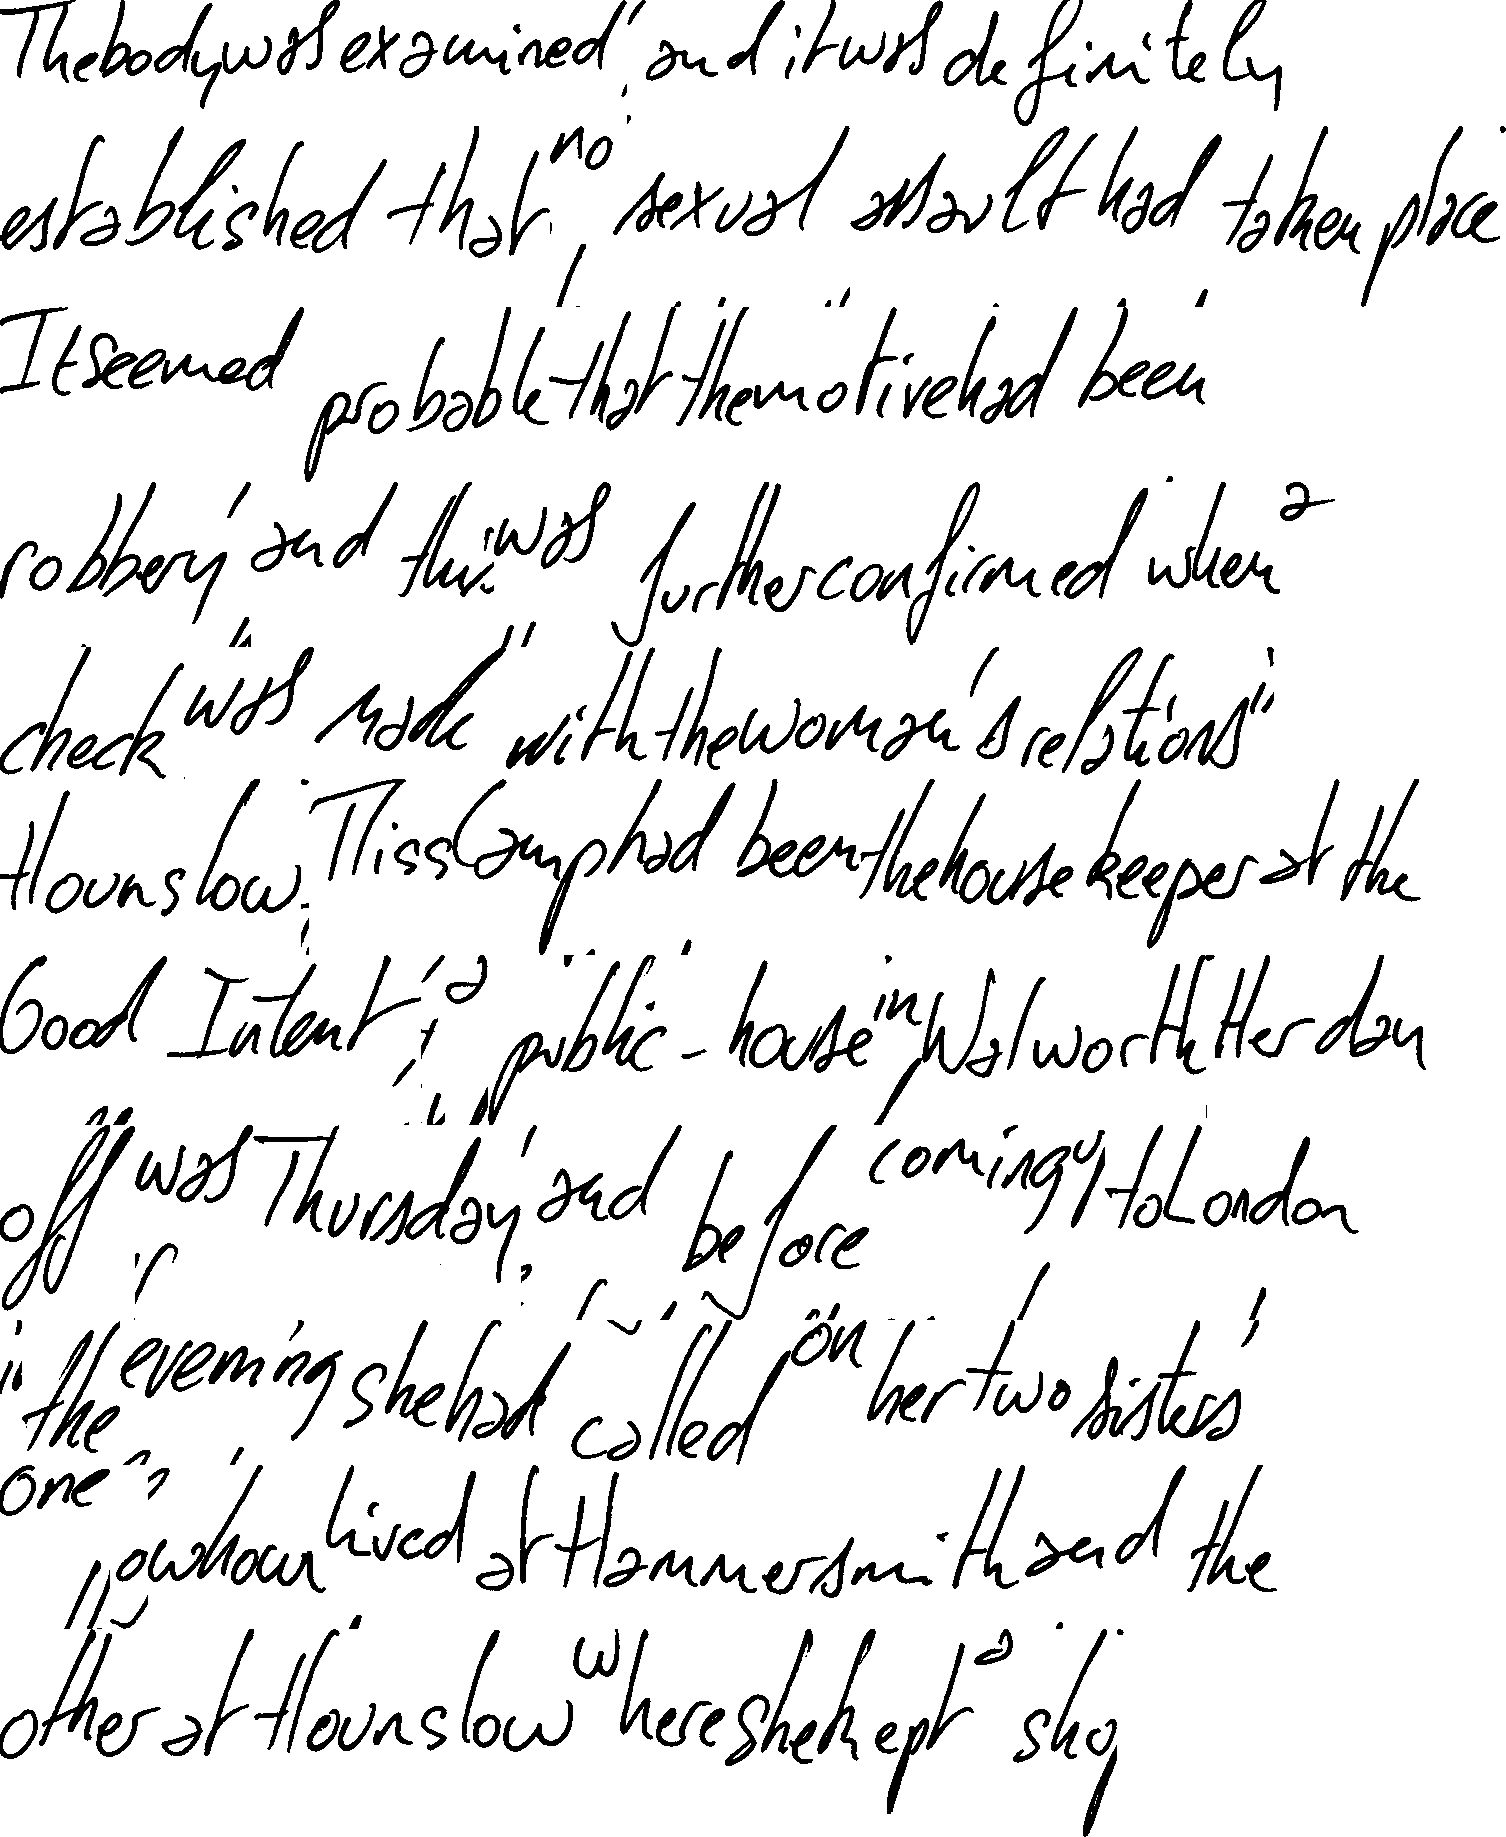 The body was examined, and it was definitely
established that no sexual assault had taken place
It seemed probable that the motive had been
robbery, and this was further confirmed when a
check was made with the woman's relations
Hounslow. Miss Camp had been the housekeeper at the
Good Intent, a public-house in Walworth. Her day
off was Thursday, and before coming to London
in the evening she had called on her two sisters,
one of whom lived at Hammersmith and the
other at Hounslow where she kept a shop